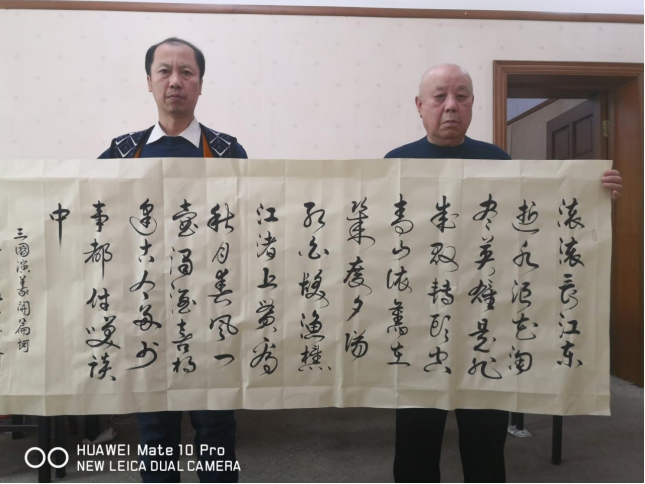 滚滚长江东
逝水浪花淘
尽英雄是非
成败转头空
青山依舊在
幾度夕陽
红白髮渔樵
江渚上惯看
秋月春风一
壶浊酒喜相
逢古今多少
事都付笑谈
中
三國演義開篇词
HUAWEI Mate 10 Pro
NEW LEICA DUAL CAMERA